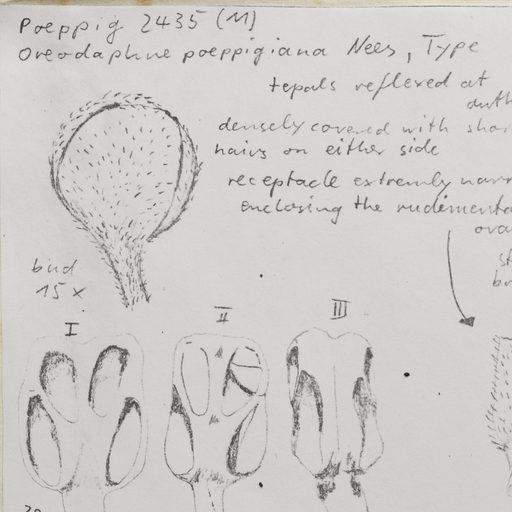 Poeppig 2435 (M)
Oreodaphne poeppigiana Nees, Type
tepals reflexed at
anth
densely covered with shor
hairs on either side
receptacle extremely narr
enclosing the rudimenta
ova
st
bud
15 x
I
II
III